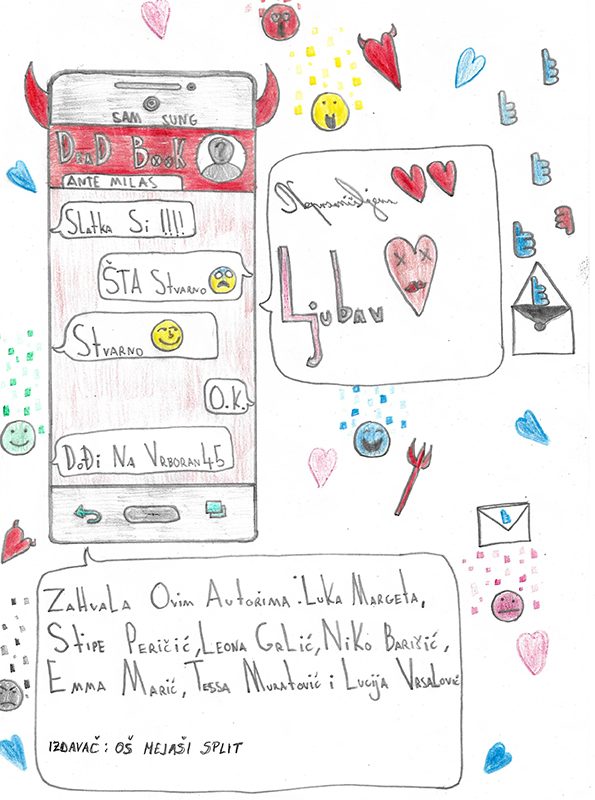 SAM SUNG
DEAD BOOK
ANTE MILAS
Slatka Si !!!!
ŠTA Stvarno
Stvarno
O.K.
Dođi Na Vrboran 45
Nepromišljena
Ljubav
Zahvala Ovim Autorima: Luka Margeta,
Stipe Peričić, Leona Grlić, Niko Baričić,
Emma Marić, Tessa Muratović i Lucija Vrsalović
IZDAVAČ: OŠ MEJAŠI SPLIT